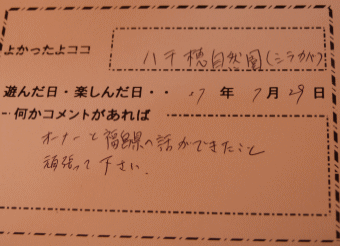 よかったよココ 八千穂自然園(シラカバ)
遊んだ日・楽しんだ日・・ '17 年 7 月 29 日
何かコメントがあれば
オーナーと福島県の話ができたこと
頑張って下さい.